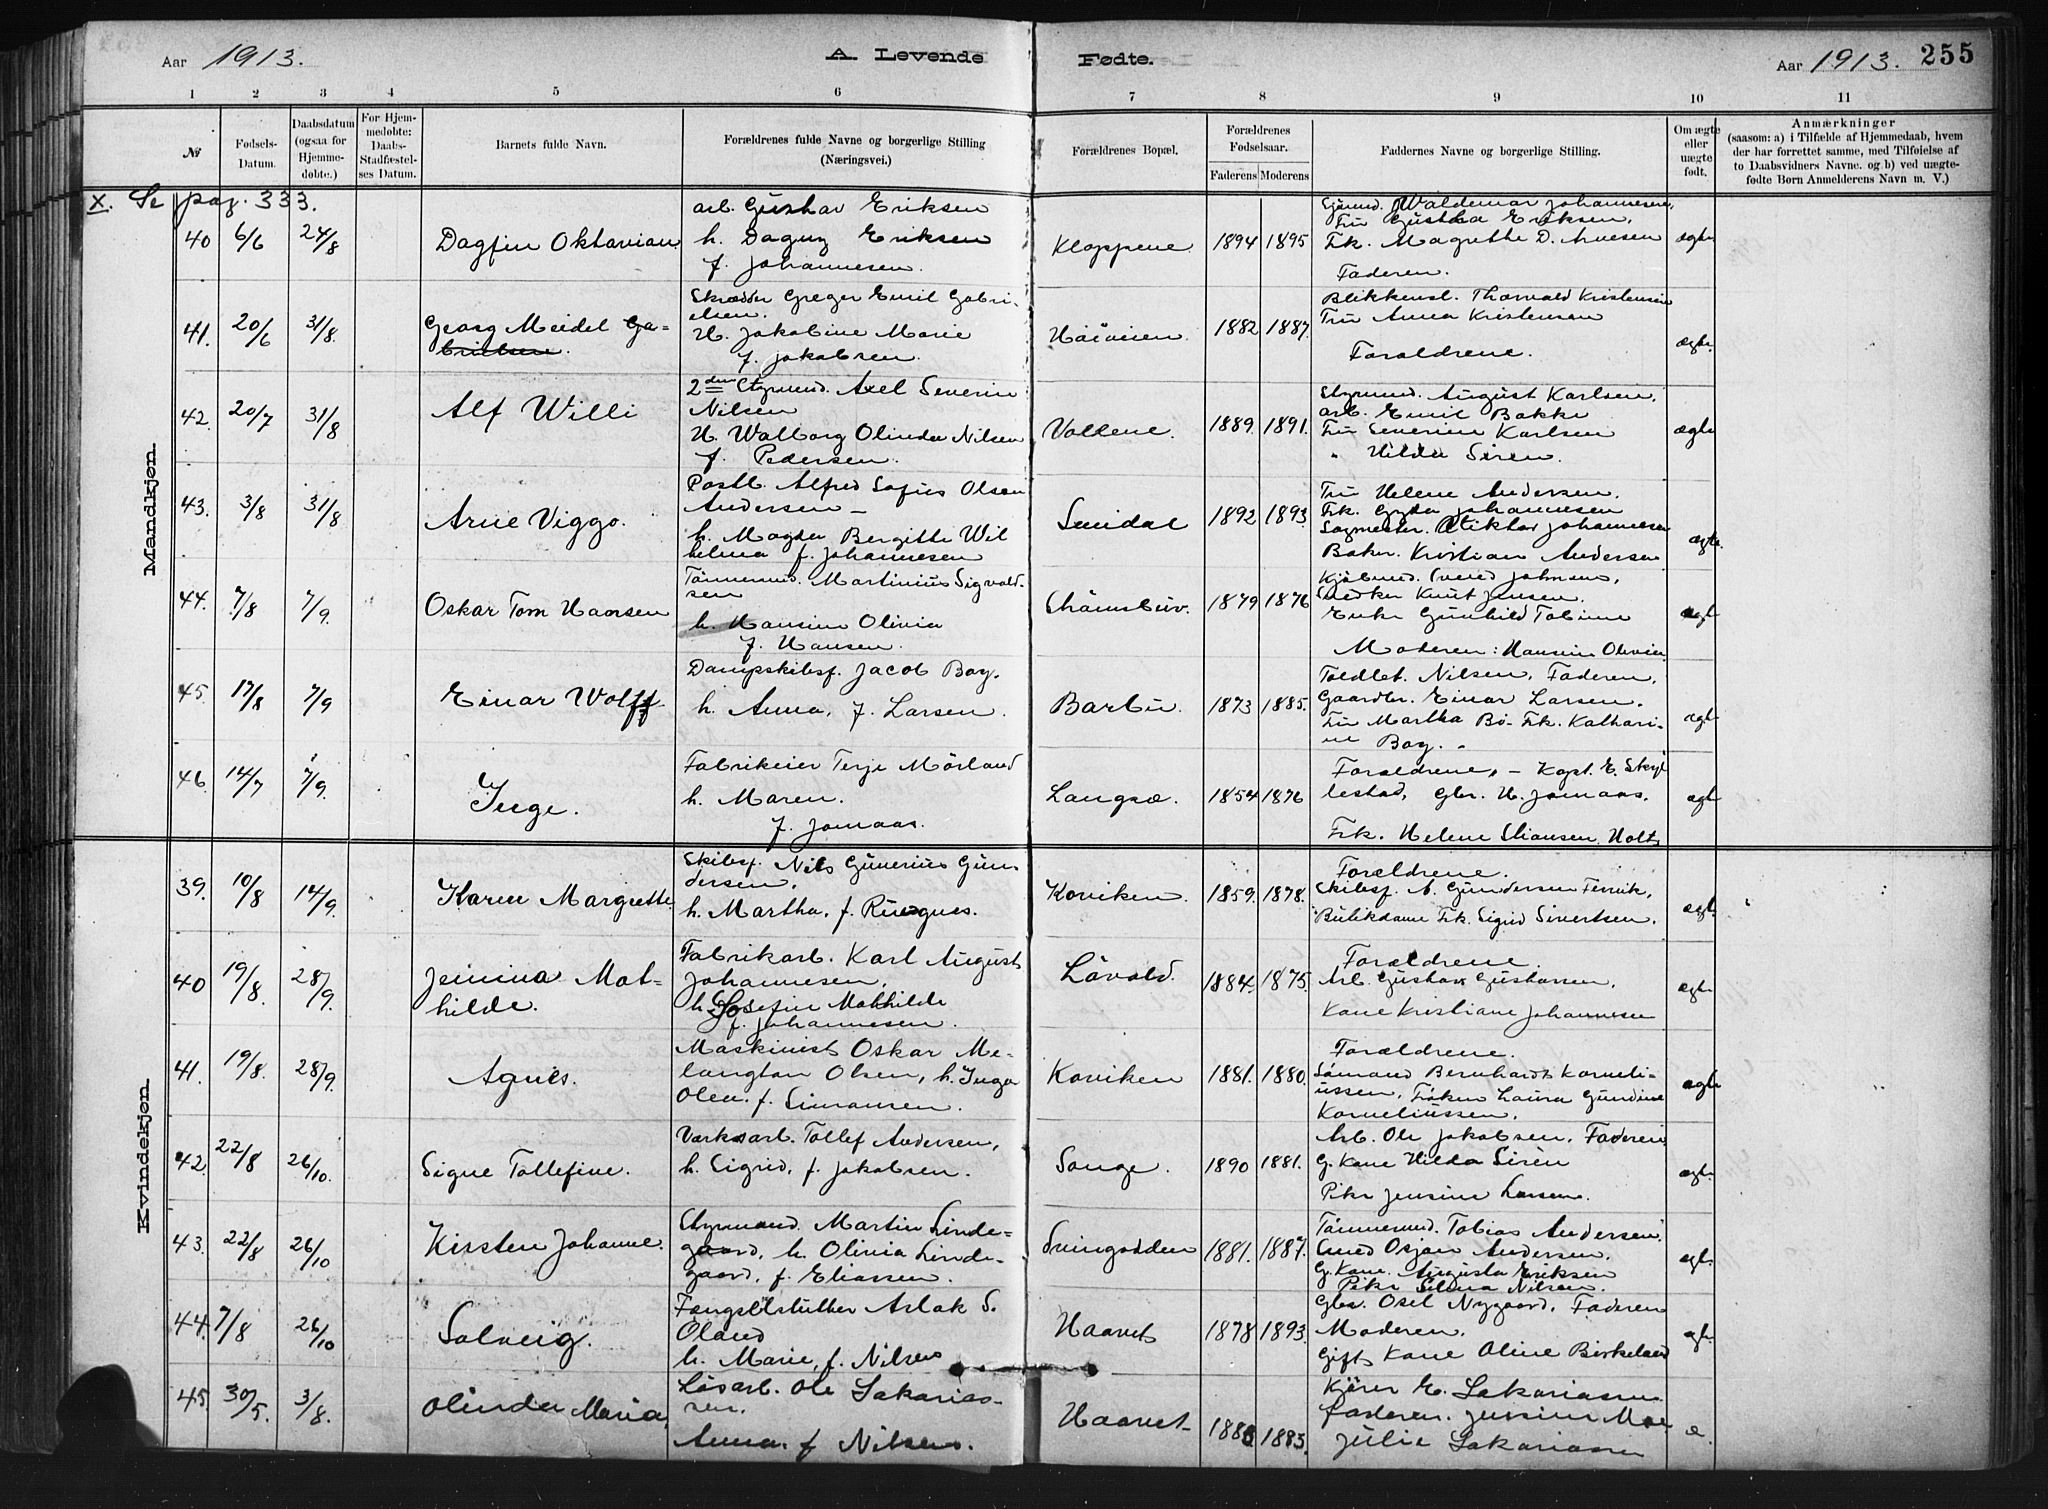 Aar 1913.
A. Levende Fødte.
Aar 1913.
255
1 2 3 4 5 6 7 8 9 10 11
№
Fødsels-
Datum.
Daabsdatum
(ogsaa for
Hjemme-
døbte.)
For Hjem-
medøbte:
Daabs-
Stadfæstel-
ses Datum.
Barnets fulde Navn.
Forældrenes fulde Navne og borgerlige Stilling
(Næringsvei.)
Forældrenes Bopæl.
Forældrenes
Fødselsaar.
Faderens Moderens
Faddernes Navne og borgerlige Stilling.
Om ægte
eller
uægte
født.
Anmærkninger
(saasom: a) i Tilfælde af Hjemmedaab, hvem
der har forrettet samme, med Tilføielse af
to Daabsvidners Navne. og b) ved uægte-
fødte Børn Anmelderens Navn m. V.)
x. Se pag. 333.
Mandkjøn.
40 6/6 24/8
Dagfin Oktavian
arb. Gustav Eriksen
h. Dagny Eriksen
f. Johannesen.
Kloppene
1894 1895
Sjømd. Waldemar Johannesen,
Fru Gustava Eriksen,
Frk. Magrethe D. Arnesen
Faderen.
ægte
41. 20/6 31/8.
Georg Meidel Ga-
brielsen.
Skrædder Greger Emil Gabri-
elsen.
H. Jakobine Marie
f. Jakobsen.
Haaveien
1882 1887.
Blikkensl. Thorvald Kristensen
Fru Anna Kristensen
Forældrene.
ægte.
42. 20/7 31/8
Alf Willi
2den Styrmd. Axel Severin
Nilsen
H. Walborg Olinda Nilsen
f. Pedersen.
Vollene.
1889. 1891.
Styrmd. August Karlsen,
arb. Emil Bakke
Fru Severine Karlsen
" Hilda Siren.
ægte
43. 3/8 31/8
Arne Viggo.
Postb. Alfred Sofus Olsen
Andersen –
h. Magda Bergitte Wil
helma f. Johannesen
Songe
1892 1893
Fru Helene Andersen.
Frk. Gyda Johannesen
Sagmester. Viktor Johannesen
Baker. Kristian Andersen
ægte.
44. 7/8 7/9.
Oskar Tom Hansen
Tømmermd. Martinius Sigvald-
sen
h. Hansine Olivia
f. Hansen.
Strømsbuv.
1879 1876
Kjøbmd. Svend Johnsen,
Snedker Knut Jensen.
Enke Gunhild Tobine
Moderen: Hansine Olivia
ægte
45. 17/8 7/9
Einar Wolff
Dampskibsf. Jacob Boy.
h. Anna, f. Larsen.
Barbu.
1873 1885.
Toldbt. Nilsen, Faderen,
Gaardbr. Einar Larsen.
Fru Martha Bø. Frk. Kathari-
ne Boy.
ægte
46. 14/7 7/9.
Inge.
Fabrikeier Terje Mørland
h. Maren.
f. Jomaas.
Langsæ.
1854 1876
Forældrene, – Kapt. E. Skyl
lestad, Gbr. H. Jomaas.
Frk. Helene Stiansen, Holt
ægte
Kvindekjøn.
39. 10/8 14/9.
Karen Margrethe
Skibsf. Nils Gunerius Gun
dersen,
h. Martha, f. Ringnes.
Korviken.
1859. 1878.
Forældrene.
Skibsf. A. Gundersen Fervik,
Butikdame Frk. Sigrid Sivertsen.
ægte.
40 19/8. 28/9.
Jenina Mat-
hilde.
Fabrikarb. Karl August
Johannesen,
h. Josefine Mathilde
f. Johannesen.
Løvold.
1884. 1875.
Forældrene.
Arb. Gustav Gustavsen,
Kone Kristiane Johannesen
ægte.
41. 19/8. 28/9.
Agnes.
Maskinist Oskar Me-
langton Olsen, h. Inga
Olea. f. Simonsen.
Korviken
1881. 1880.
Forældrene.
Sømand Bernhardt Korneli-
ussen, Frøken Laura Gundine
Korneliussen.
ægte
42. 22/8 26/10.
Signe Tollefine.
Værksarb. Tollef Andersen,
h. Sigrid, f. Jakobsen.
Songe.
1890 1881.
Arb. Ole Jakobsen, Faderen
G. Kone Hilda Sirèn
Pike Jensine Larsen.
ægte.
43. 22/8 26/10
Kirsten Johanne.
Styrmand Martin Linde-
gaard, h. Olivia Linde-
gaard, f. Eliassen.
Svingodden
1881. 1887.
Tømmermd. Tobias Andersen,
Smed Osjan Andersen.
G. Kone. Augusta Eriksen
Pike Selma Nilsen.
ægte.
44. 7/8 26/10
Solveig.
Fængselslutter Aslak S.
Øland
h. Marie, f. Nilsen
Haavet
1878 1893.
Gbr. Osel Nygaard, Faderen
Moderen.
Gift Kone Oline Birkeland
ægte.
45. 30/5. 3/8.
Olinda Maria
Løsarb. Ole Sakarias-
sen.
Anna. f Nilsen.
Haavet
1883.
Kjører E. Sakariasen
faderen. Jensine Moe
Julie Sakariasen
æ.